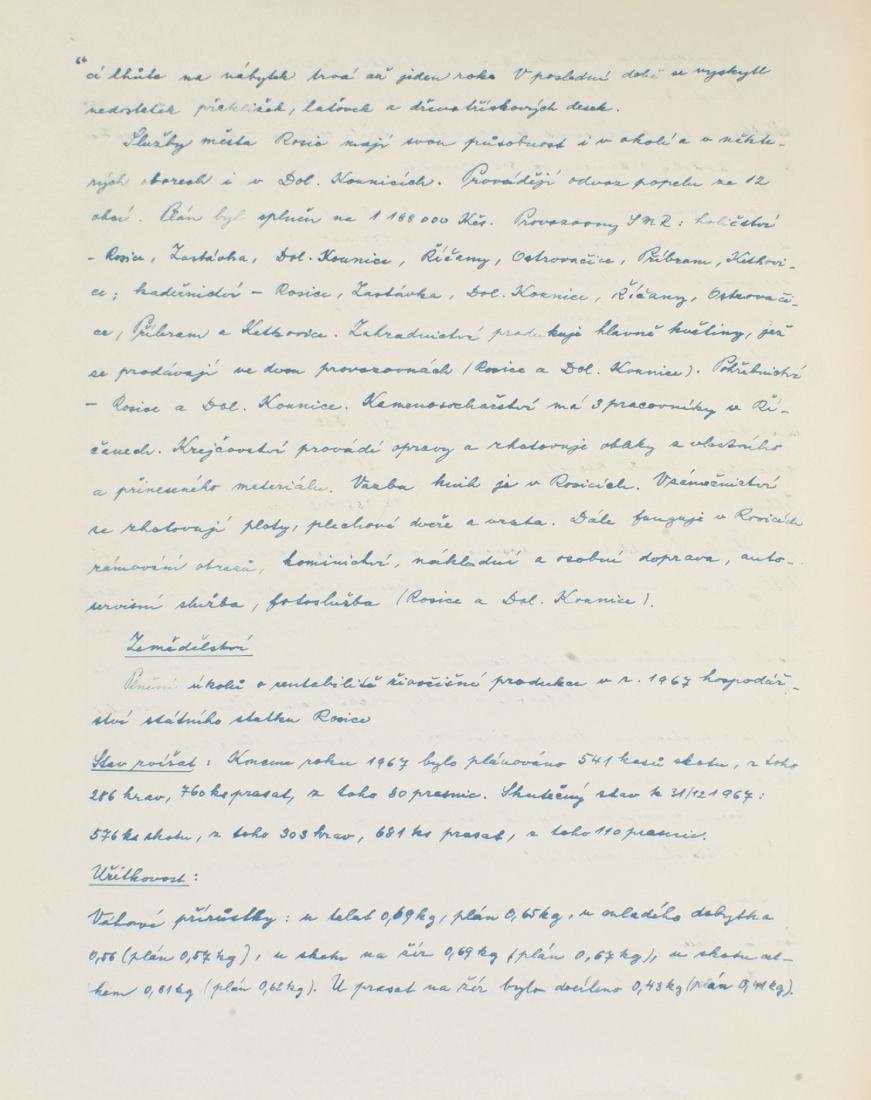 cí lhůta na nábytek trvá až jeden roke V poslední době se vyskytl
nedostatek překližek, laťovek a dřevotřískových desek.
Služby města Rosic mají svou působnost i v okolí a v někte-
rých oborech i v Dol. Kounicích. Provádějí odvoz popelu ze 12
obcí. Plán byl splněn na 1 188 000 Kčs. Provozovny SMR: holičství
- Rosice, Zastávka, Dol. Kounice, Říčany, Ostrovačice, Příbram, Ketkovi-
ce; kadeřnictví - Rosice, Zastávka, Dol. Kounice, Říčany, Ostrovači-
ce, Příbram a Ketkovice. Zahradnictví produkuje hlavně květiny, jež
se prodávají ve dvou provozovnách (Rosice a Dol. Kounice). Pohřebnictví
- Rosice a Dol. Kounice. Kamenosochařství má 3 pracovníky v Ří-
čanech. Krejčovství provádí opravy a zhotovuje obleky z vlastního
a přineseného materiálu. Vazba knih je v Rosicích. V zámečnictví
se zhotovují ploty, plechové dveře a vrata. Dále funguje v Rosicích
rámování obrazů, kominictví, nákladní a osobní doprava, auto-
servisní služba, fotoslužba (Rosice a Dol. Kounice).
Zemědělství
Plnění úkolů o rentabilitě živočišné produkce v r. 1967 hospodář-
ství státního statku Rosice
Stav zvířat: Koncem roku 1967 bylo plánováno 541 kusů skotu, z toho
286 krav, 760 ks prasat, z toho 80 prasnic. Skutečný stav k 31/12 1967:
576 ks skotu, z toho 303 krav, 681 ks prasat, z toho 110 prasnic.
Užitkovost:
Váhové přírůstky: u telat 0,69 kg, plán 0,65 kg, u mladého dobytka
0,56 (plán 0,57 kg), u skotu na žír 0,69 kg (plán 0,67 kg), u skotu cel-
kem 0,61 kg (plán 0,62 kg). U prasat na žír bylo docíleno 0,43 kg (plán 0,41 kg).